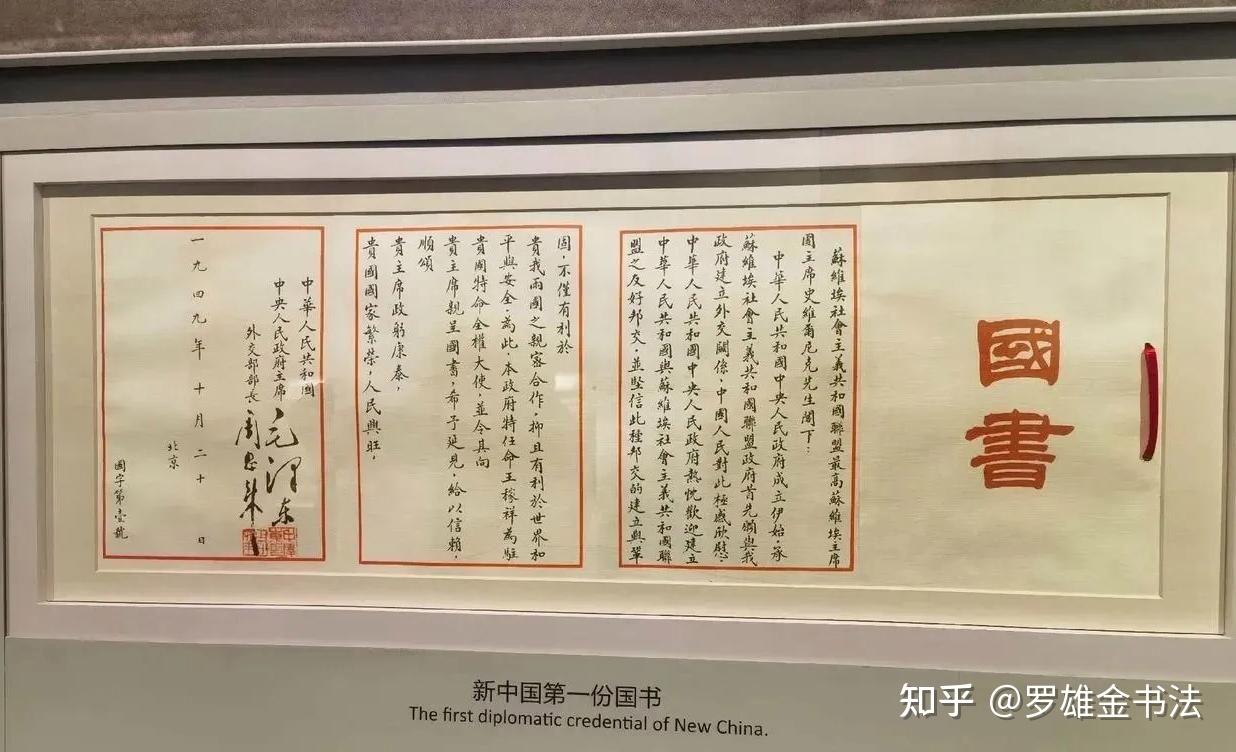 國書
蘇維埃社會主義共和國聯盟最高蘇維埃主席
團主席史維爾尼克先生閣下：
中華人民共和國中央人民政府成立伊始，承
蘇維埃社會主義共和國聯盟政府首先願與我
政府建立外交關係，中國人民對此極感欣慰。
中華人民共和國中央人民政府熱忱歡迎建立
中華人民共和國與蘇維埃社會主義共和國聯
盟之友好邦交，並堅信此種邦交的建立與鞏
固，不僅有利於
貴我兩國之親密合作，抑且有利於世界和
平與安全。為此，本政府特任命王稼祥為駐
貴國特命全權大使，並令其向
貴主席親呈國書，希予延見，給以信賴。
順頌
貴主席政躬康泰，
貴國國家繁榮，人民興旺。
中華人民共和國
中央人民政府主席 毛澤东
外交部部長 周恩来
一九四九年十月二十日
北京
國字第壹號
新中国第一份国书
The first diplomatic credential of New China.
知乎 @罗雄金书法